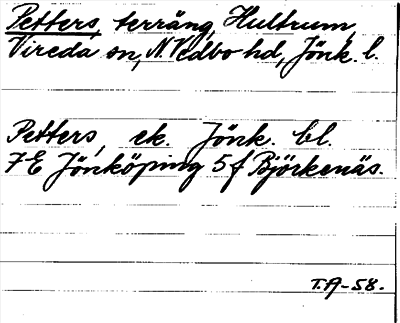 Petters, terräng, Hultrum,
Vireda sn, N. Vedbo hd, Jönk. l.
Petters, ek. Jönk. bl.
7E Jönköping 5f Björkenäs.
T.A-58.